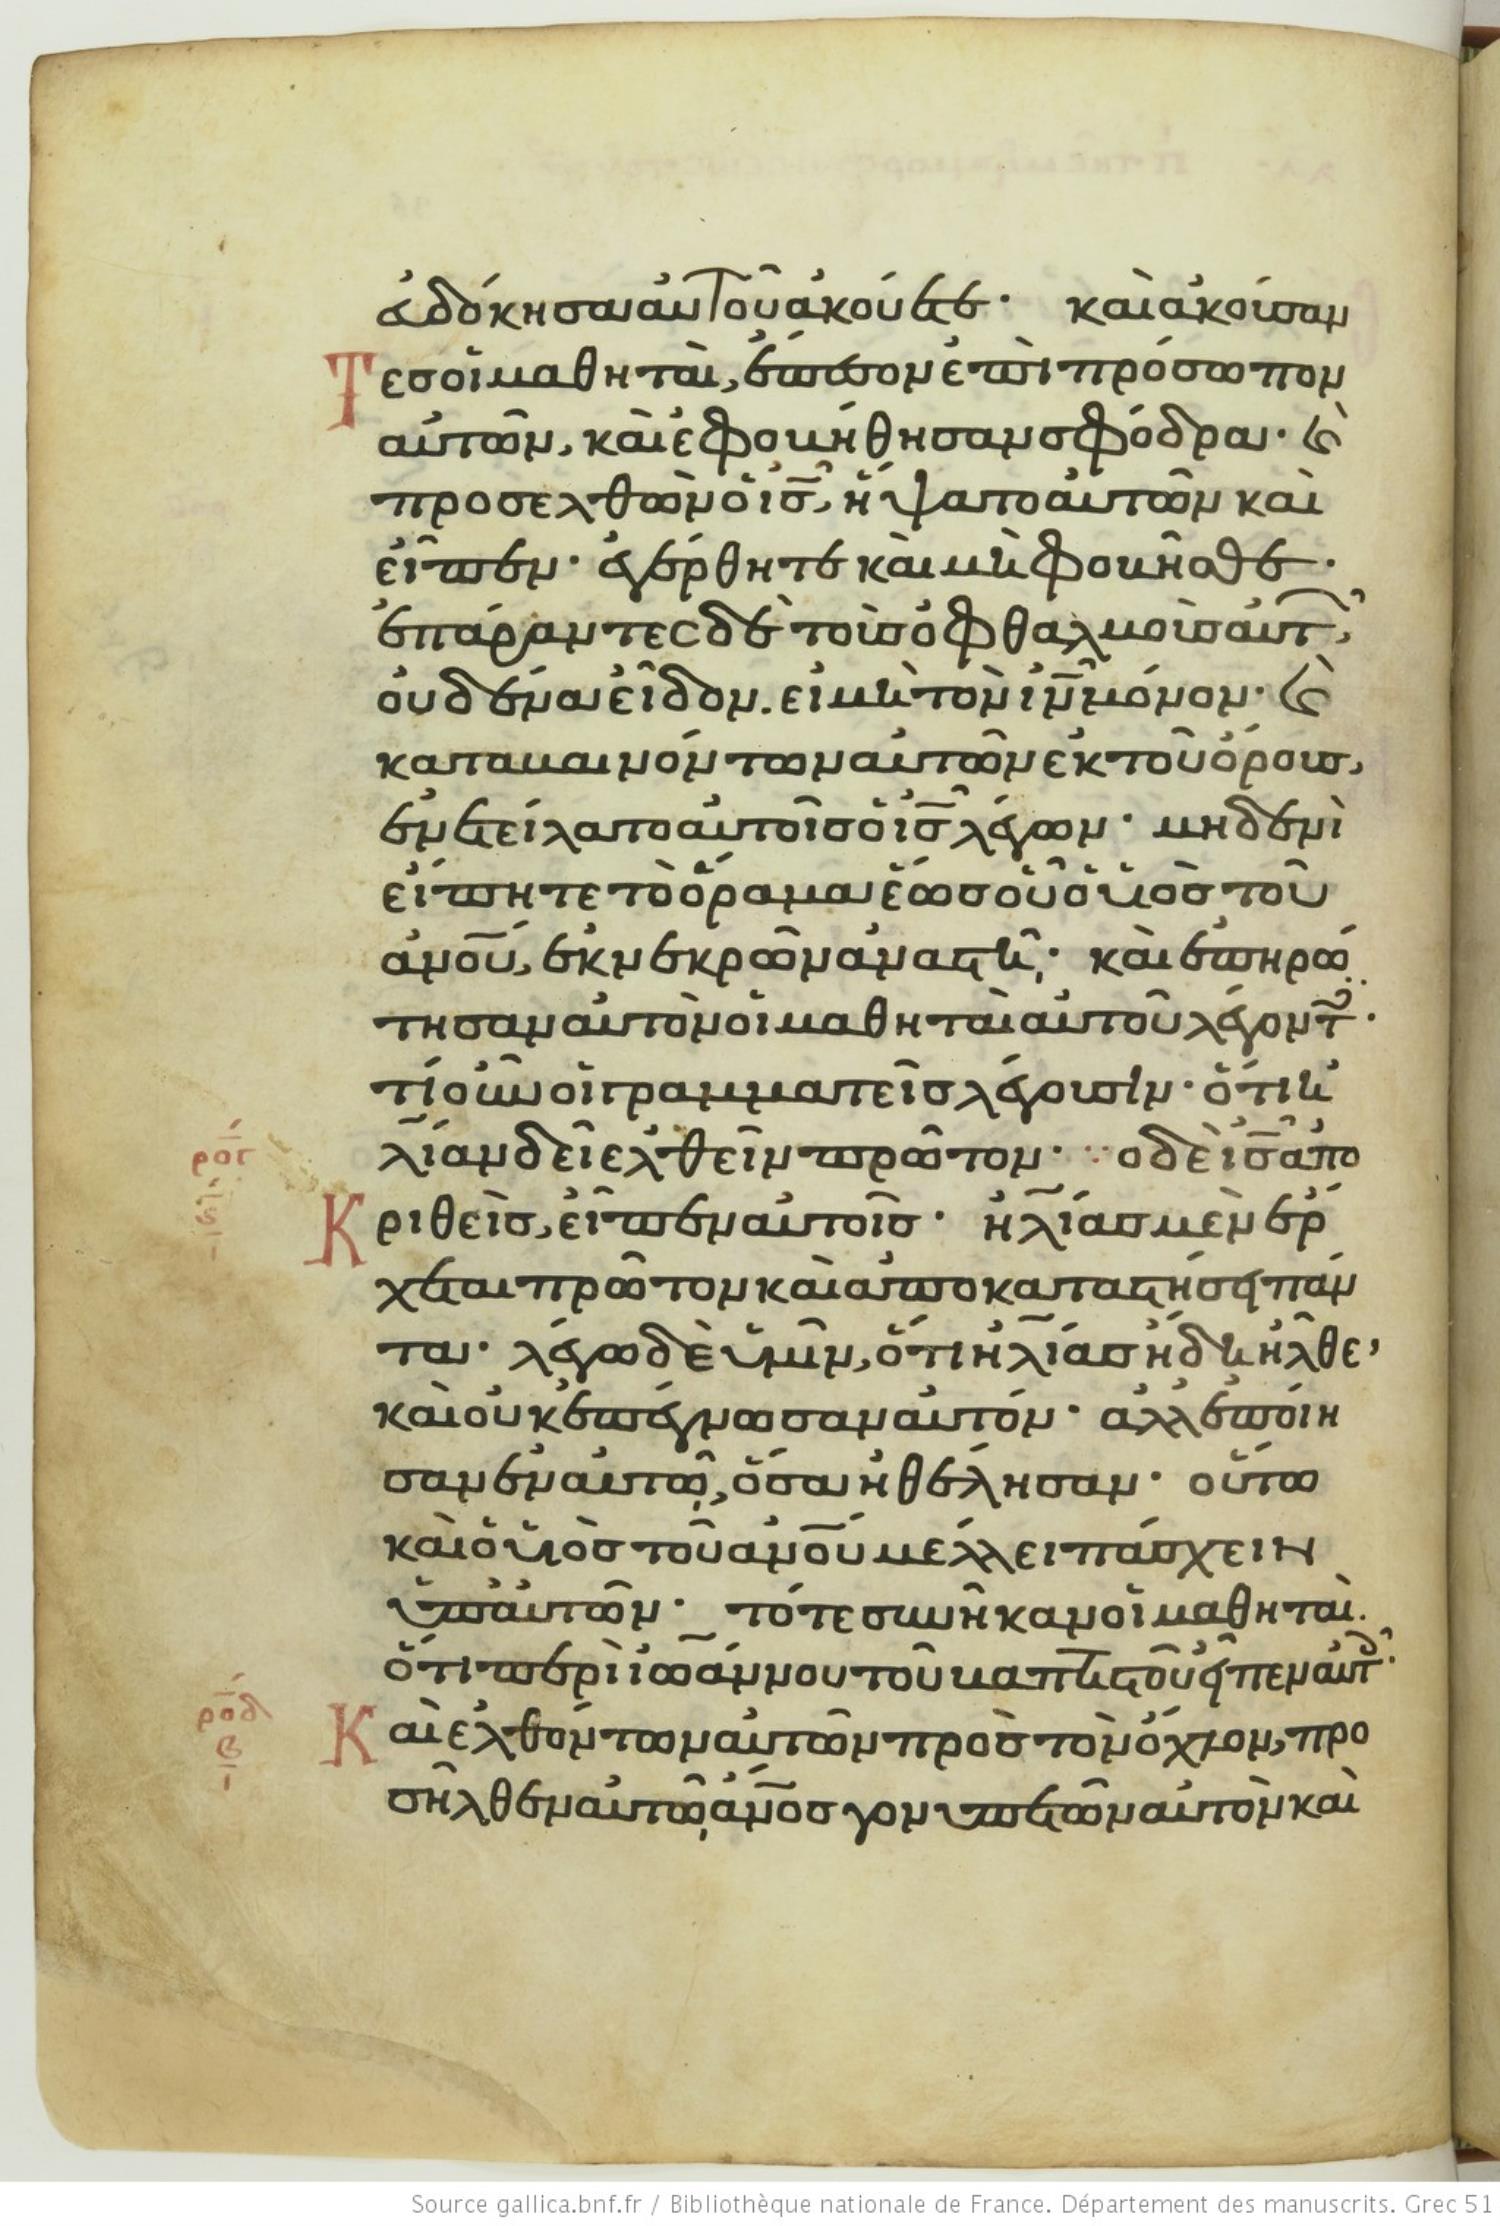 δόκησα αὐτοῦ ἀκούετε· καὶ ἀκούσαν
Τες οἱ μαθηταὶ, ἔπεσον ἐπὶ πρόσωπον
αὐτῶν, καὶ ἐφοβήθησαν σφόδρα· καὶ
προσελθὼν ὁ ις, ἥψατο αὐτῶν καὶ
εἶπεν· ἐγέρθητε καὶ μὴ φοβῆσθε·
ἐπάραντες δὲ τοὺς ὀφθαλμοὺς αὐτ,
οὐδένα εἶδον. εἰ μὴ τὸν ιν μόνον· καὶ
καταβαινόντων αὐτῶν ἐκ τοῦ ὄρους,
ἐνετείλατο αὐτοῖς ὁ ις λέγων· μηδενὶ
εἴπητε τὸ ὅραμα ἕως οὗ ὁ υἱὸς τοῦ
ανου, ἐκ νεκρῶν ἀναστῇ· καὶ ἐπηρώ
τησαν αὐτὸν οἱ μαθηταὶ αὐτοῦ λέγοντ·
τί οὖν οἱ γραμματεῖς λέγουσιν· ὅτι ἠ
λίαν δεῖ ἐλθεῖν πρῶτον· ὁ δὲ ις ἀπο
ρογ
Κριθεὶς, εἶπεν αὐτοῖς· ἠλίας μὲν ἔρ
ϛ
χεται πρῶτον καὶ ἀποκαταστήσει πάν
τα· λέγω δὲ ὑμῖν, ὅτι ἠλίας ἤδη ἦλθε,
καὶ οὐκ ἐπέγνωσαν αὐτόν· ἀλλ' ἐποίη
σαν ἐν αὐτῷ, ὅσα ἠθέλησαν· οὕτω
καὶ ὁ υἱὸς τοῦ ανου μέλλει πάσχειν
ὑπ' αὐτῶν· τότε συνῆκαν οἱ μαθηταὶ.
ὅτι περὶ ἰωάννου τοῦ βαπτιστοῦ εἶπεν αὐτ·
ροδ
Καὶ ἐλθόντων αὐτῶν πρὸς τὸν ὄχλον, προ
β
σῆλθεν αὐτῷ ανος γονυπετῶν αὐτὸν καὶ
Source gallica.bnf.fr / Bibliothèque nationale de France. Département des manuscrits. Grec 51